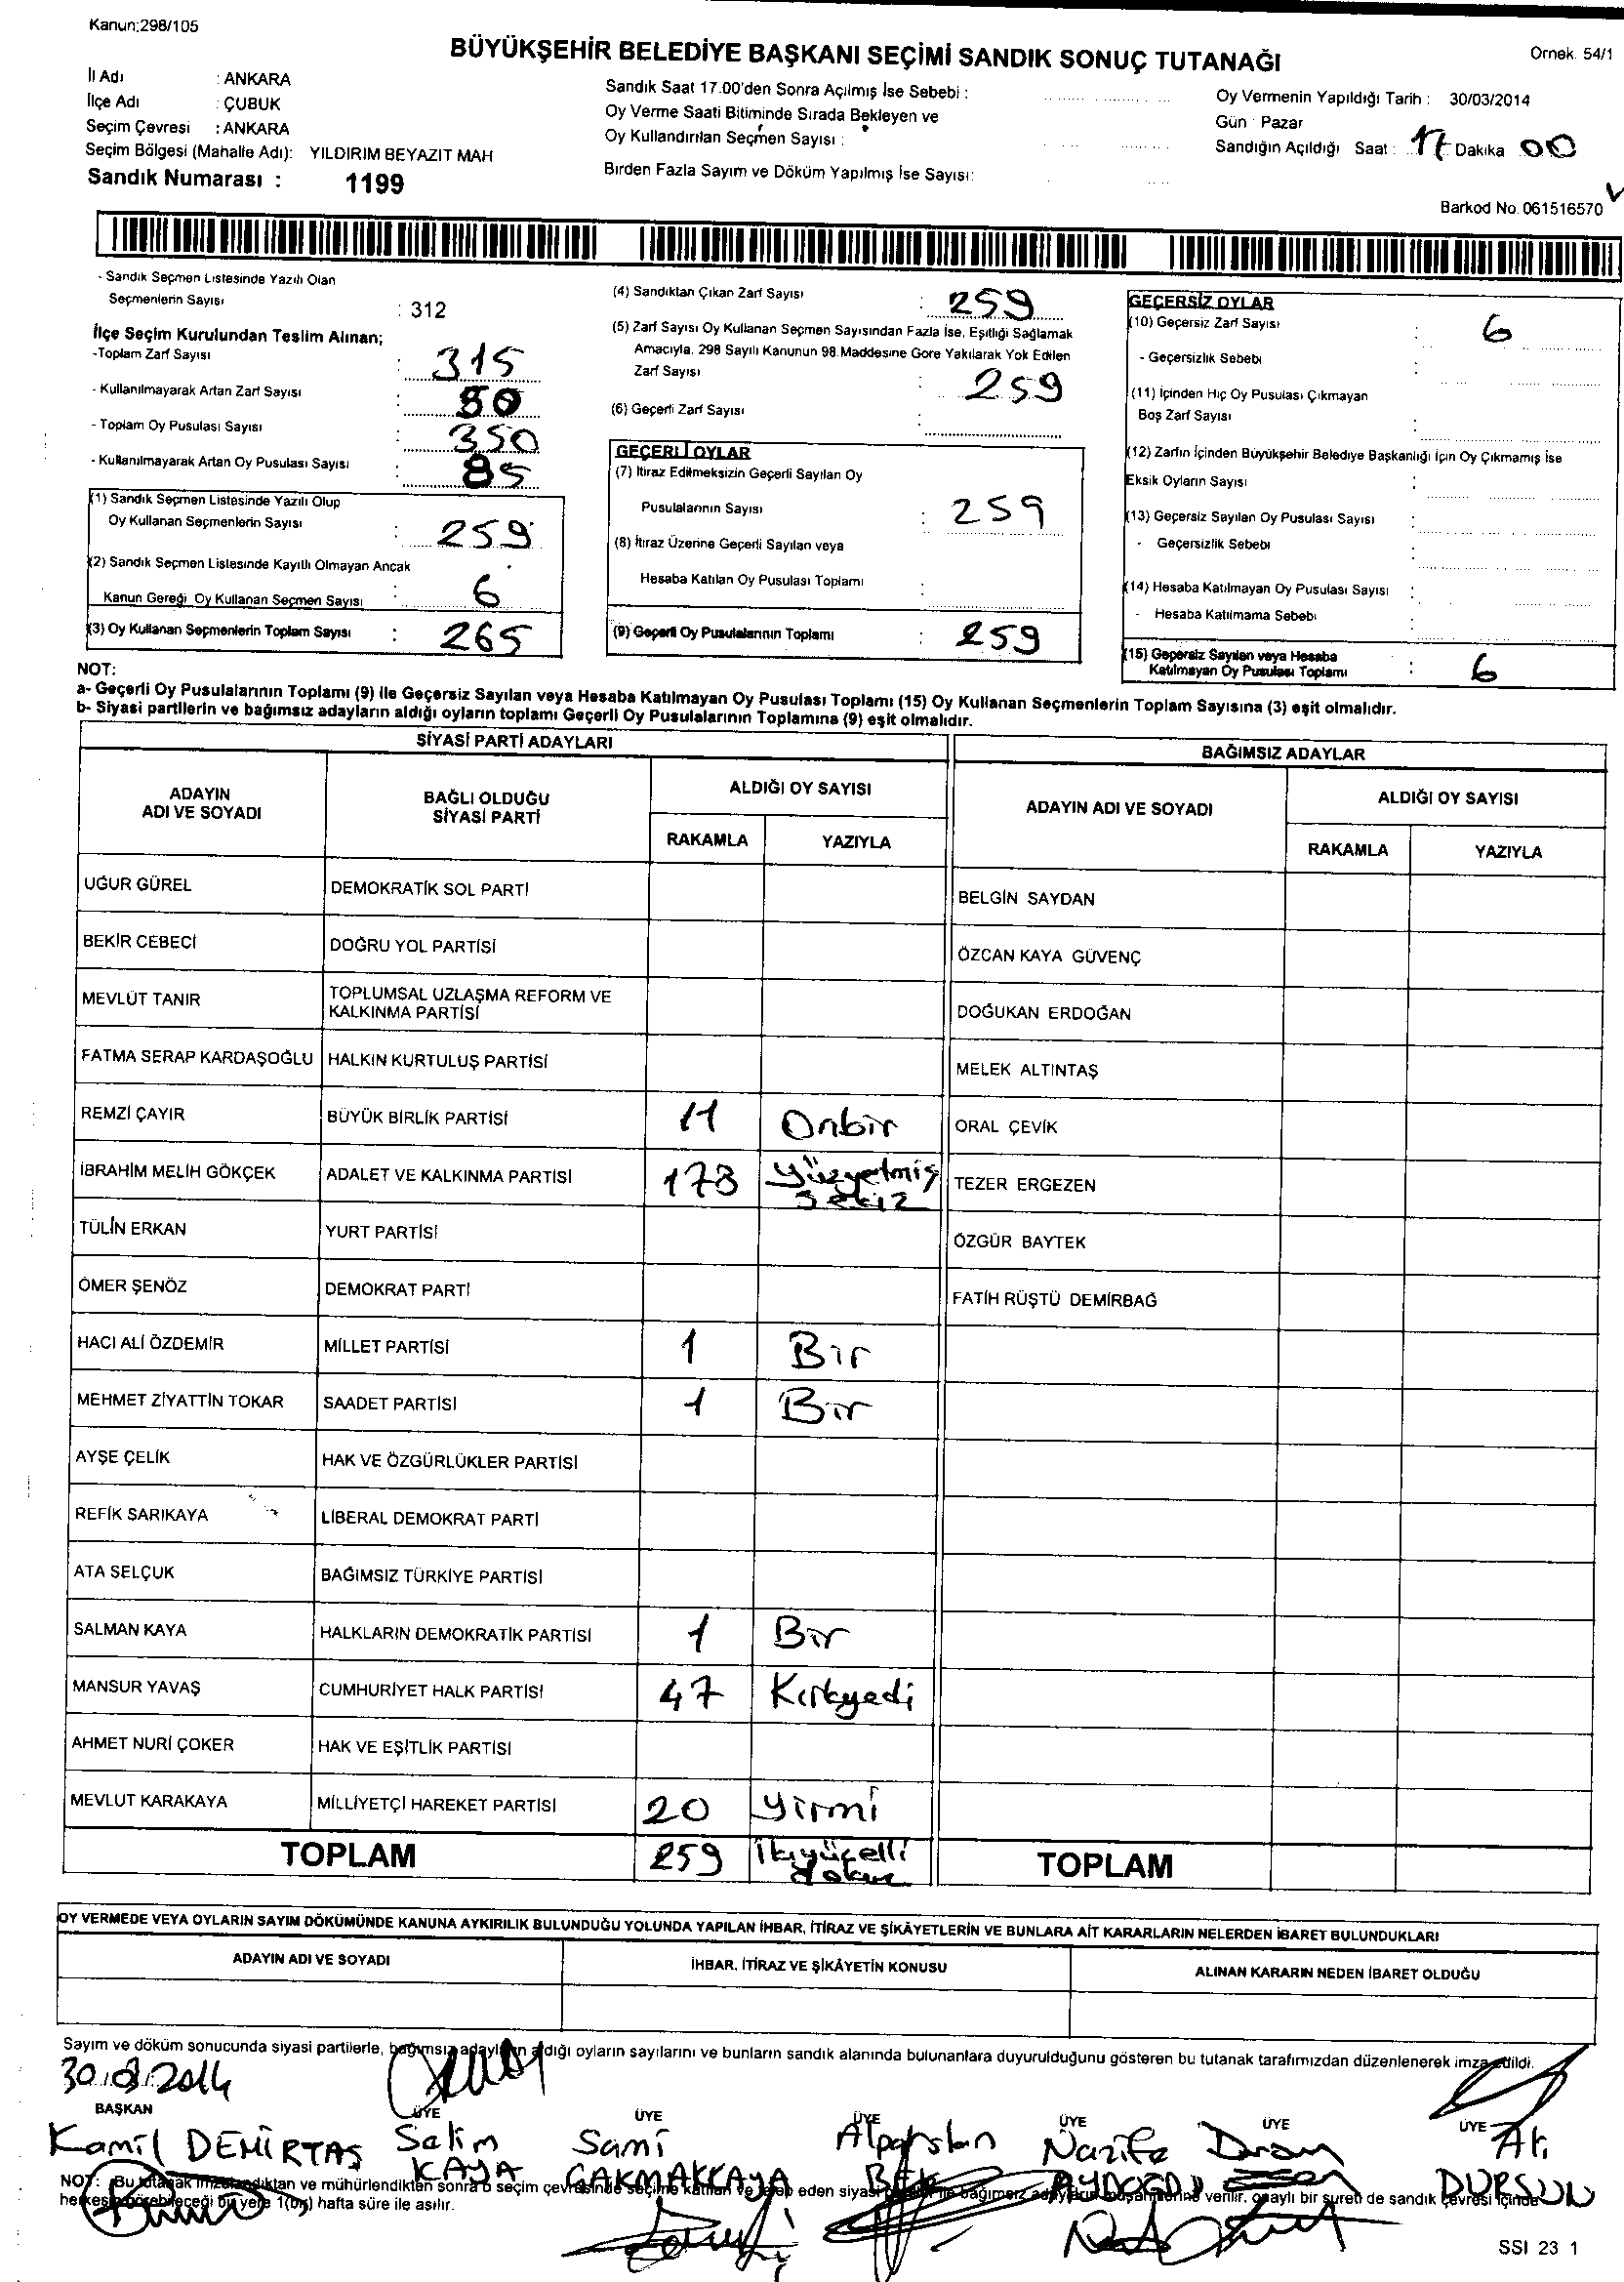 Kanun:298/105
BÜYÜKŞEHİR BELEDİYE BAŞKANI SEÇİMİ SANDIK SONUÇ TUTANAĞI
Örnek. 54/1
İl Adı : ANKARA
İlçe Adı : ÇUBUK
Seçim Çevresi : ANKARA
Seçim Bölgesi (Mahalle Adı): YILDIRIM BEYAZIT MAH
Sandık Numarası : 1199
Sandık Saat 17.00'den Sonra Açılmış İse Sebebi :
Oy Verme Saati Bitiminde Sırada Bekleyen ve
Oy Kullandırılan Seçmen Sayısı :
Birden Fazla Sayım ve Döküm Yapılmış İse Sayısı:
Oy Vermenin Yapıldığı Tarih : 30/03/2014
Gün : Pazar
Sandığın Açıldığı Saat : 17 Dakika 00
Barkod No. 061516570
- Sandık Seçmen Listesinde Yazılı Olan
Seçmenlerin Sayısı : 312
İlçe Seçim Kurulundan Teslim Alınan;
-Toplam Zarf Sayısı : 315
- Kullanılmayarak Artan Zarf Sayısı : 50
- Toplam Oy Pusulası Sayısı : 350
- Kullanılmayarak Artan Oy Pusulası Sayısı : 85
(1) Sandık Seçmen Listesinde Yazılı Olup
Oy Kullanan Seçmenlerin Sayısı : 259
(2) Sandık Seçmen Listesinde Kayıtlı Olmayan Ancak
Kanun Gereği Oy Kullanan Seçmen Sayısı : 6
(3) Oy Kullanan Seçmenlerin Toplam Sayısı : 265
(4) Sandıktan Çıkan Zarf Sayısı : 259
(5) Zarf Sayısı Oy Kullanan Seçmen Sayısından Fazla İse, Eşitliği Sağlamak
Amacıyla, 298 Sayılı Kanunun 98.Maddesine Göre Yakılarak Yok Edilen
Zarf Sayısı : 259
(6) Geçerli Zarf Sayısı :
GEÇERLİ OYLAR
(7) İtiraz Edilmeksizin Geçerli Sayılan Oy
Pusulalarının Sayısı : 259
(8) İtiraz Üzerine Geçerli Sayılan veya
Hesaba Katılan Oy Pusulası Toplamı :
(9) Geçerli Oy Pusulalarının Toplamı : 259
GEÇERSİZ OYLAR
(10) Geçersiz Zarf Sayısı : 6
- Geçersizlik Sebebi :
(11) İçinden Hiç Oy Pusulası Çıkmayan
Boş Zarf Sayısı :
(12) Zarfın İçinden Büyükşehir Belediye Başkanlığı İçin Oy Çıkmamış İse
Eksik Oyların Sayısı :
(13) Geçersiz Sayılan Oy Pusulası Sayısı :
- Geçersizlik Sebebi :
(14) Hesaba Katılmayan Oy Pusulası Sayısı :
- Hesaba Katılmama Sebebi :
(15) Geçersiz Sayılan veya Hesaba
Katılmayan Oy Pusulası Toplamı : 6
NOT:
a- Geçerli Oy Pusulalarının Toplamı (9) ile Geçersiz Sayılan veya Hesaba Katılmayan Oy Pusulası Toplamı (15) Oy Kullanan Seçmenlerin Toplam Sayısına (3) eşit olmalıdır.
b- Siyasi partilerin ve bağımsız adayların aldığı oyların toplamı Geçerli Oy Pusulalarının Toplamına (9) eşit olmalıdır.
SİYASİ PARTİ ADAYLARI
BAĞIMSIZ ADAYLAR
ADAYIN ADI VE SOYADI
BAĞLI OLDUĞU SİYASİ PARTİ
ALDIĞI OY SAYISI
RAKAMLA YAZIYLA
ADAYIN ADI VE SOYADI
ALDIĞI OY SAYISI
RAKAMLA YAZIYLA
UĞUR GÜREL DEMOKRATİK SOL PARTİ BELGİN SAYDAN
BEKİR CEBECİ DOĞRU YOL PARTİSİ ÖZCAN KAYA GÜVENÇ
MEVLÜT TANIR TOPLUMSAL UZLAŞMA REFORM VE KALKINMA PARTİSİ DOĞUKAN ERDOĞAN
FATMA SERAP KARDAŞOĞLU HALKIN KURTULUŞ PARTİSİ MELEK ALTINTAŞ
REMZİ ÇAYIR BÜYÜK BİRLİK PARTİSİ 11 Onbir ORAL ÇEVİK
İBRAHİM MELİH GÖKÇEK ADALET VE KALKINMA PARTİSİ 178 Yüzyetmiş sekiz TEZER ERGEZEN
TÜLİN ERKAN YURT PARTİSİ ÖZGÜR BAYTEK
ÖMER ŞENÖZ DEMOKRAT PARTİ FATİH RÜŞTÜ DEMİRBAĞ
HACI ALİ ÖZDEMİR MİLLET PARTİSİ 1 Bir
MEHMET ZİYATTİN TOKAR SAADET PARTİSİ 1 Bir
AYŞE ÇELİK HAK VE ÖZGÜRLÜKLER PARTİSİ
REFİK SARIKAYA LİBERAL DEMOKRAT PARTİ
ATA SELÇUK BAĞIMSIZ TÜRKİYE PARTİSİ
SALMAN KAYA HALKLARIN DEMOKRATİK PARTİSİ 1 Bir
MANSUR YAVAŞ CUMHURİYET HALK PARTİSİ 47 Kırkyedi
AHMET NURİ ÇOKER HAK VE EŞİTLİK PARTİSİ
MEVLUT KARAKAYA MİLLİYETÇİ HAREKET PARTİSİ 20 Yirmi
TOPLAM 259 İkiyüzelli dokuz TOPLAM
OY VERMEDE VEYA OYLARIN SAYIM DÖKÜMÜNDE KANUNA AYKIRILIK BULUNDUĞU YOLUNDA YAPILAN İHBAR, İTİRAZ VE ŞİKÂYETLERİN VE BUNLARA AİT KARARLARIN NELERDEN İBARET BULUNDUKLARI
ADAYIN ADI VE SOYADI İHBAR, İTİRAZ VE ŞİKÂYETİN KONUSU ALINAN KARARIN NEDEN İBARET OLDUĞU
Sayım ve döküm sonucunda siyasi partilerle, bağımsız adayların aldığı oyların sayılarını ve bunların sandık alanında bulunanlara duyurulduğunu gösteren bu tutanak tarafımızdan düzenlenerek imza edildi.
30.03.2014
BAŞKAN ÜYE ÜYE ÜYE ÜYE ÜYE ÜYE
Kamil DEMİRTAŞ Selim KAYA Sami ÇAKMAKKAYA Alparslan BEK Nazife AYDOĞDU Ali DURSUN
NOT: Bu tutanak imzalandıktan ve mühürlendikten sonra o seçim çevresinde seçime katılan ve talep eden siyasi partiler ile bağımsız adayların müşahitlerine verilir. onaylı bir sureti de sandık çevresi içinde
herkesin görebileceği bir yere 1(bir) hafta süre ile asılır.
SSI 23 1